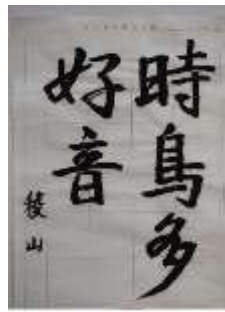 時鳥多
好音
稜山